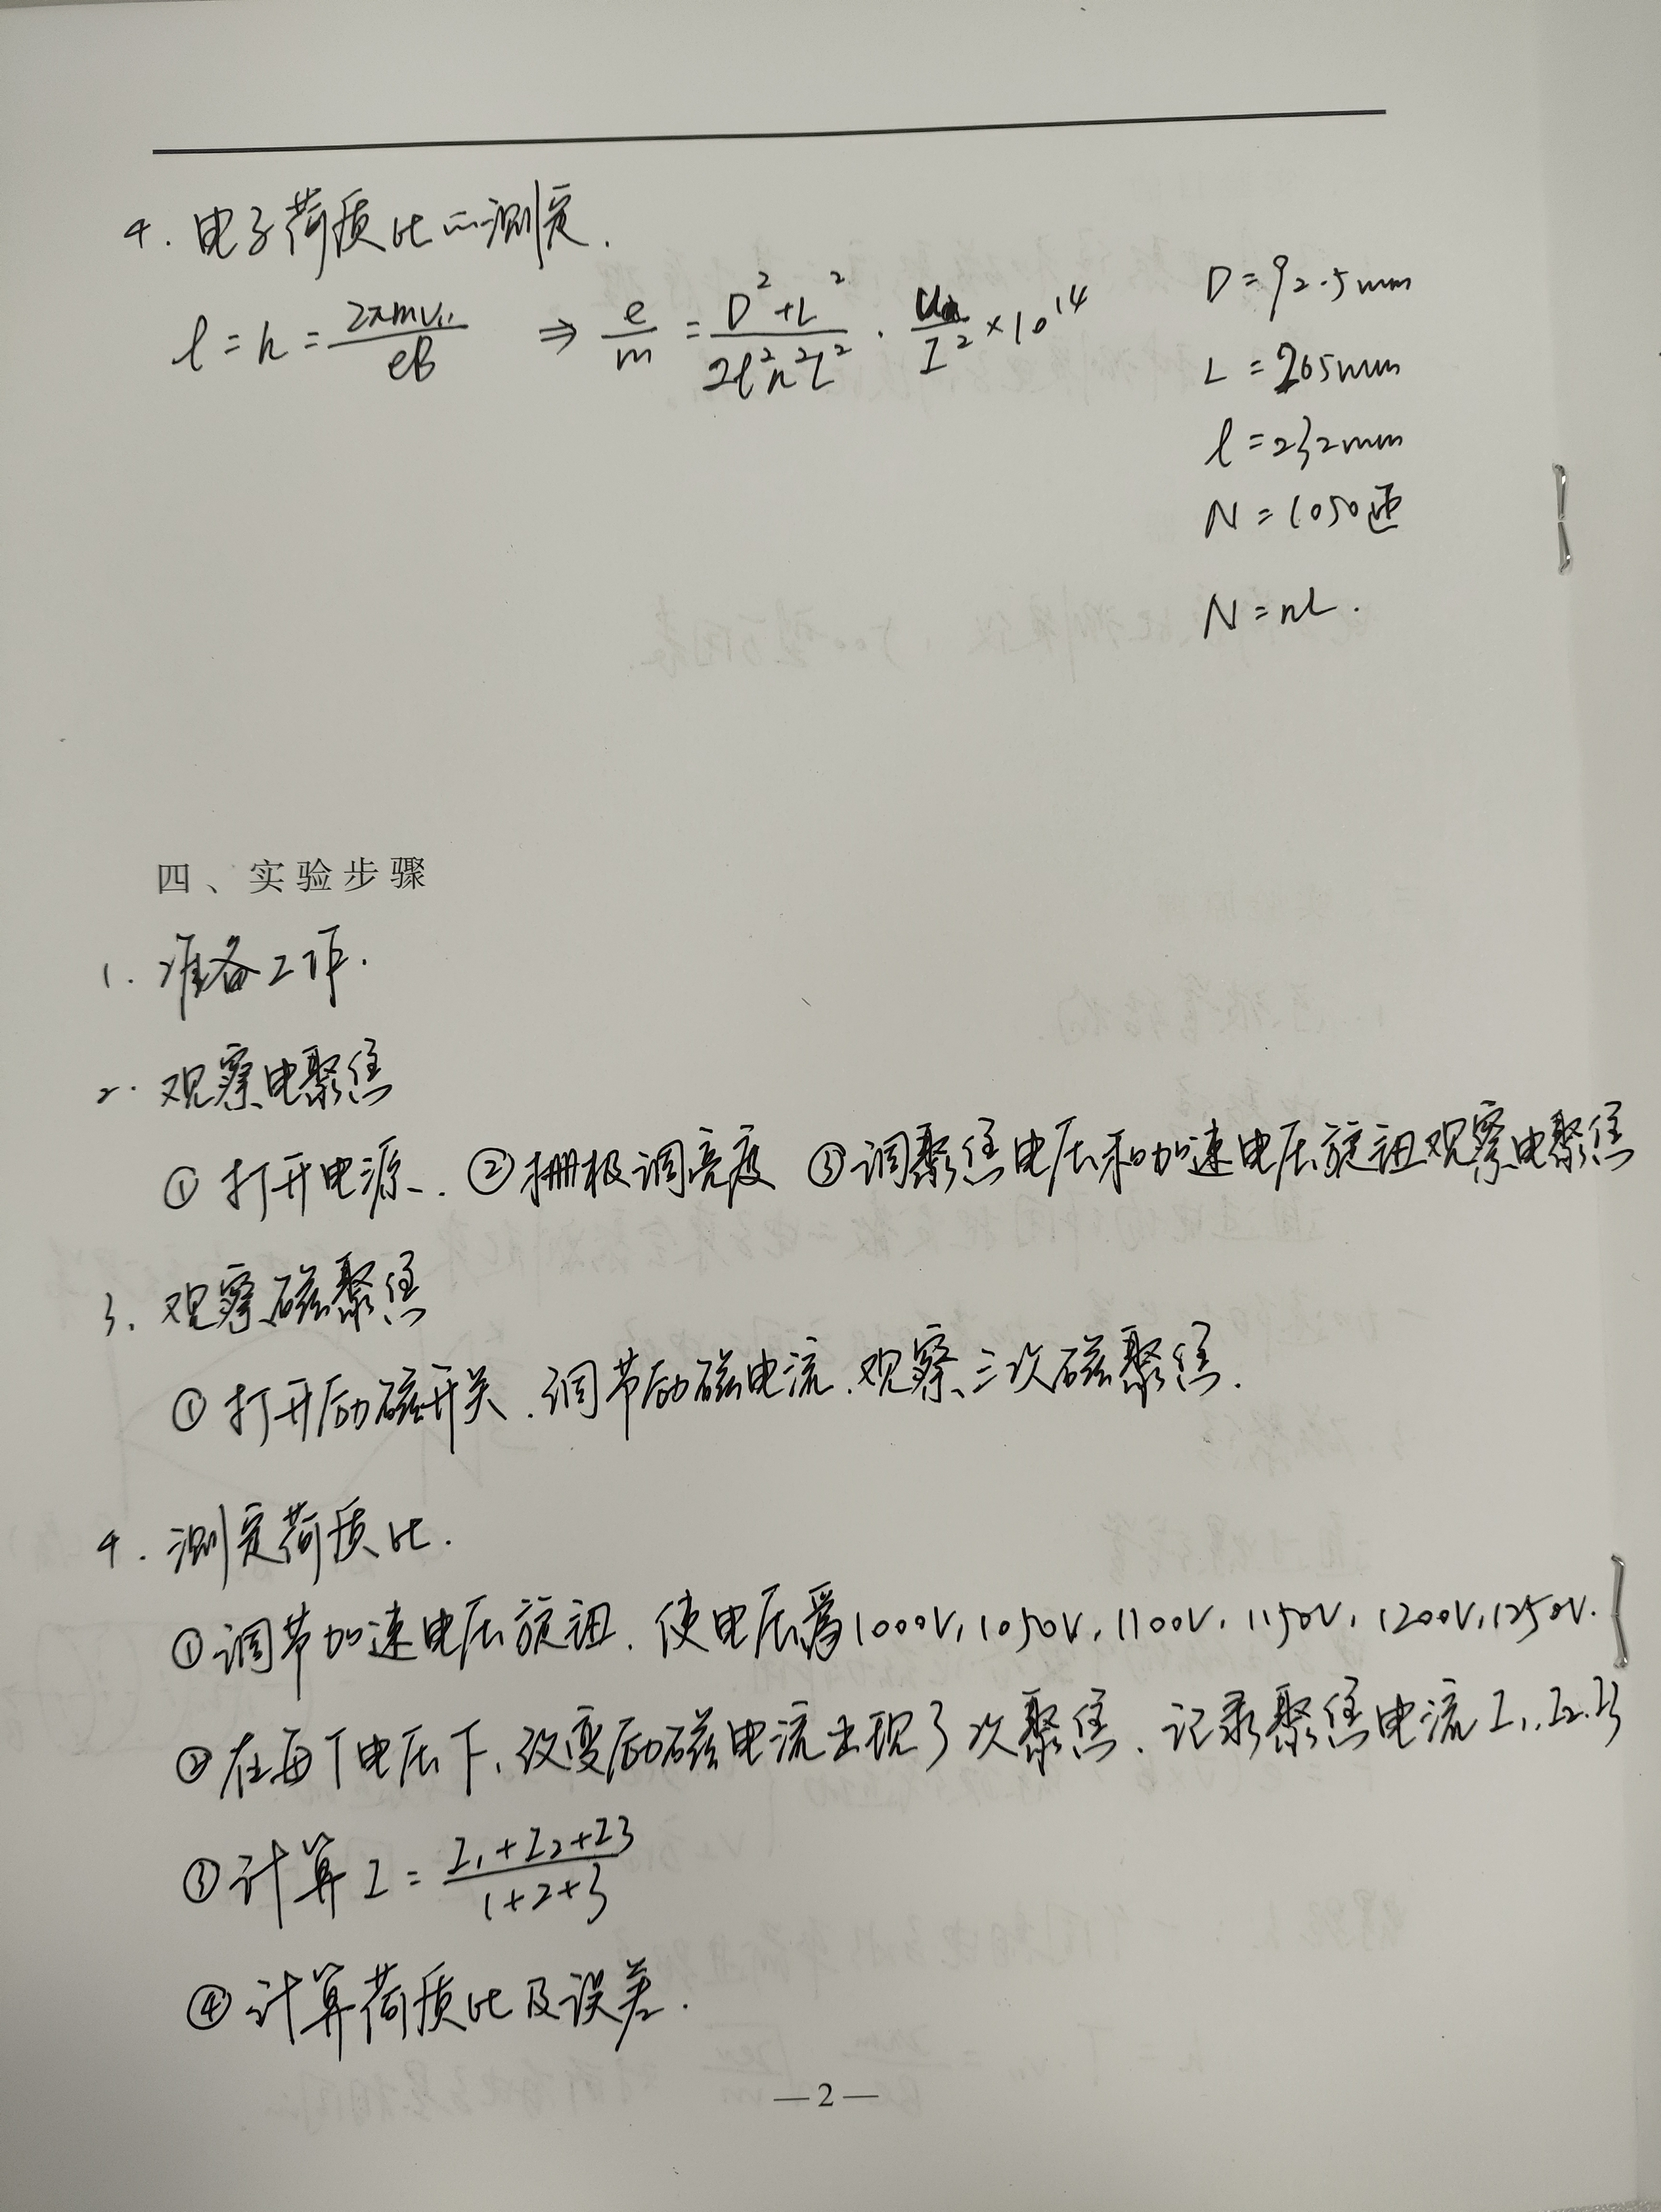 4. 电子荷质比的测定.
l = h = 2πmv∥/eB ⇒ e/m = (D²+L²)/(2l²n²L²) · Ua/I² ×10¹⁴
D = 92.5mm
L = 265mm
l = 232mm
N = 1050匝
N = nL.
四、实验步骤
1. 准备工作.
2. 观察电聚焦
① 打开电源. ②栅极调亮度 ③调聚焦电压和加速电压旋钮观察电聚焦
3. 观察磁聚焦
① 打开励磁开关. 调节励磁电流. 观察三次磁聚焦.
4. 测定荷质比.
①调节加速电压旋钮. 使电压为1000V, 1050V, 1100V, 1150V, 1200V, 1250V.
②在每个电压下, 改变励磁电流出现3次聚焦. 记录聚焦电流 I₁, I₂, I₃
③计算 I = (I₁+I₂+I₃)/(1+2+3)
④计算荷质比及误差.
—2—